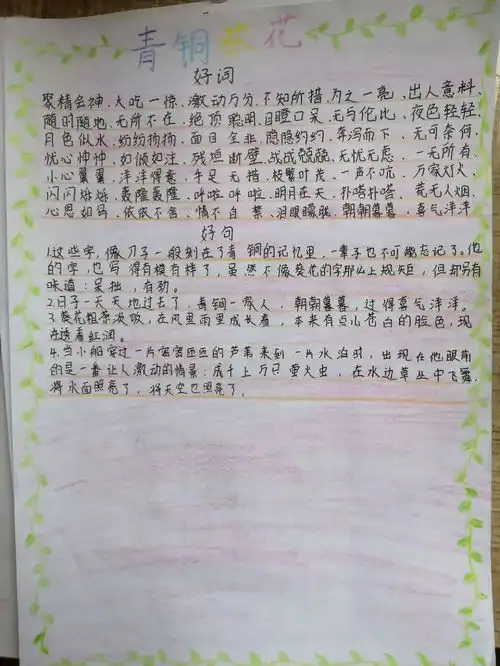 青铜葵花
好词
聚精会神、大吃一惊、激动万分、不知所措、为之一亮、出人意料、
随时随地、无所不在、绝顶聪明、目瞪口呆、无与伦比、夜色轻轻、
月色似水、纷纷扬扬、面目全非、隐隐约约、奔泻而下、无可奈何、
忧心忡忡、如倾如注、残垣断壁、战战兢兢、无忧无虑、一无所有、
小心翼翼、洋洋得意、手足无措、枝繁叶茂、一声不吭、万家灯火、
闪闪烁烁、轰隆轰隆、呼啦呼啦、明月在天、扑嗒扑嗒、荒无人烟、
心急如焚、依依不舍、情不自禁、泪眼朦胧、朝朝暮暮、喜气洋洋
好句
1.这些字,像刀子一般刻在了青铜的记忆里,一辈子也不可能忘记了。他
的字,也写得有模有样了,虽然不像葵花的字那么上规矩,但却另有
味道:呆拙,有劲。
2.日子一天天地过去了,青铜一家人,朝朝暮暮,过得喜气洋洋。
3.葵花粗茶淡饭,在风里雨里成长着,本来有点儿苍白的脸色,现
在透着红润。
4.当小船穿过一片密密匝匝的芦苇来到一片水泊时,出现在他眼前
的是一番让人激动的情景:成千上万只萤火虫,在水边草丛中飞舞,
将水面照亮了,将天空也照亮了。